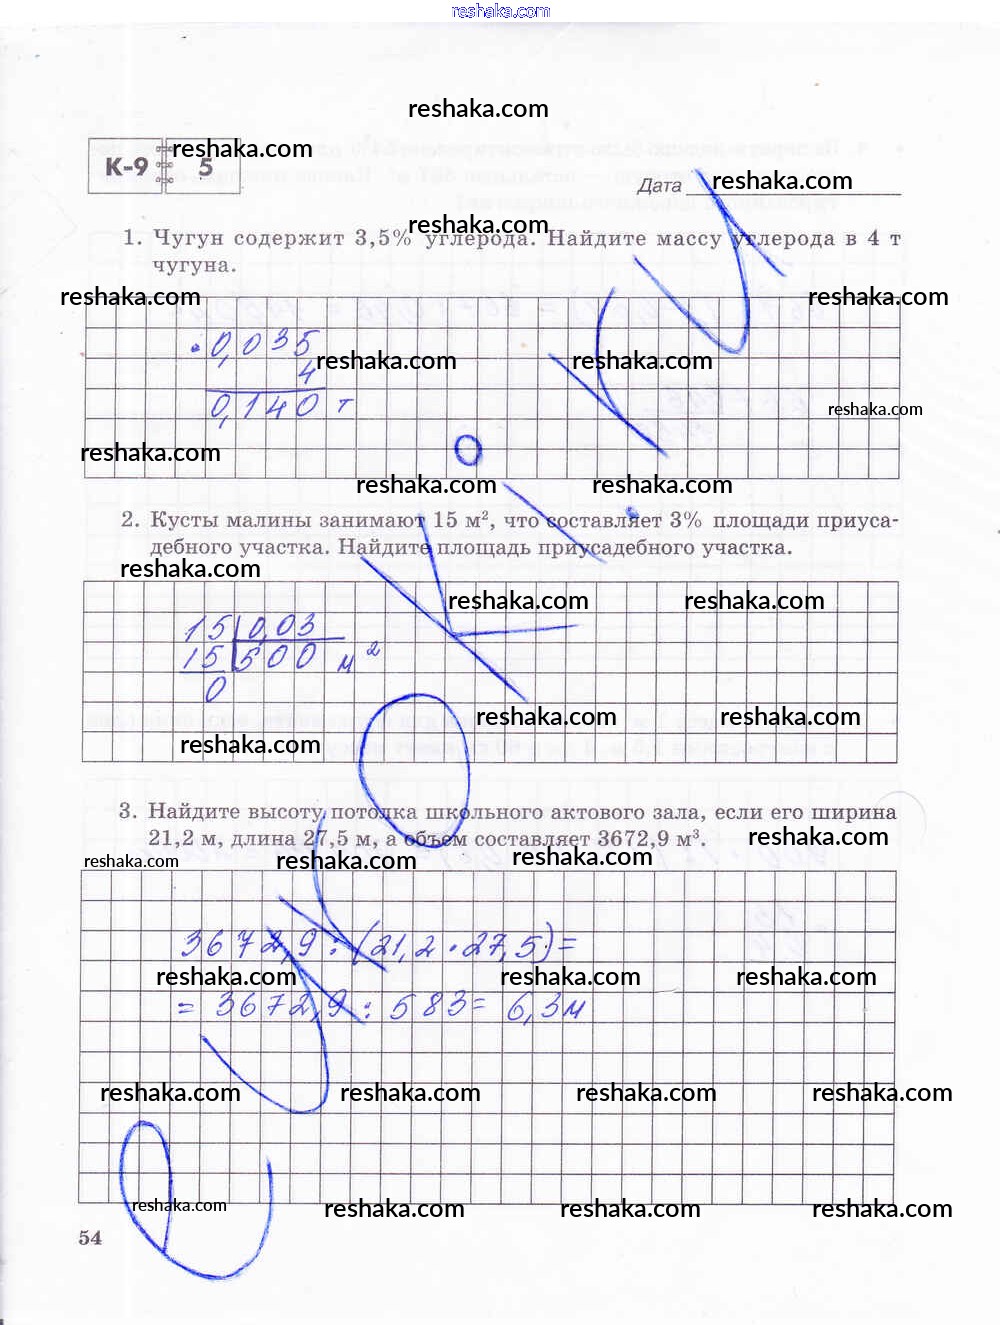 reshaka.com
reshaka.com
К-9 5 reshaka.com
Дата reshaka.com
reshaka.com
1. Чугун содержит 3,5% углерода. Найдите массу углерода в 4 т
чугуна.
reshaka.com reshaka.com
0,035
4
reshaka.com reshaka.com
0,140 т
reshaka.com
reshaka.com
reshaka.com reshaka.com
2. Кусты малины занимают 15 м², что составляет 3% площади приуса-
дебного участка. Найдите площадь приусадебного участка.
reshaka.com
reshaka.com reshaka.com
15 0,03
15 500 м²
0
reshaka.com reshaka.com
reshaka.com
3. Найдите высоту потолка школьного актового зала, если его ширина
21,2 м, длина 27,5 м, а объем составляет 3672,9 м³.
reshaka.com
reshaka.com reshaka.com reshaka.com
3672,9 : (21,2 · 27,5) =
reshaka.com reshaka.com reshaka.com
= 3672,9 : 583 = 6,3 м
reshaka.com reshaka.com reshaka.com reshaka.com
reshaka.com reshaka.com reshaka.com reshaka.com
54